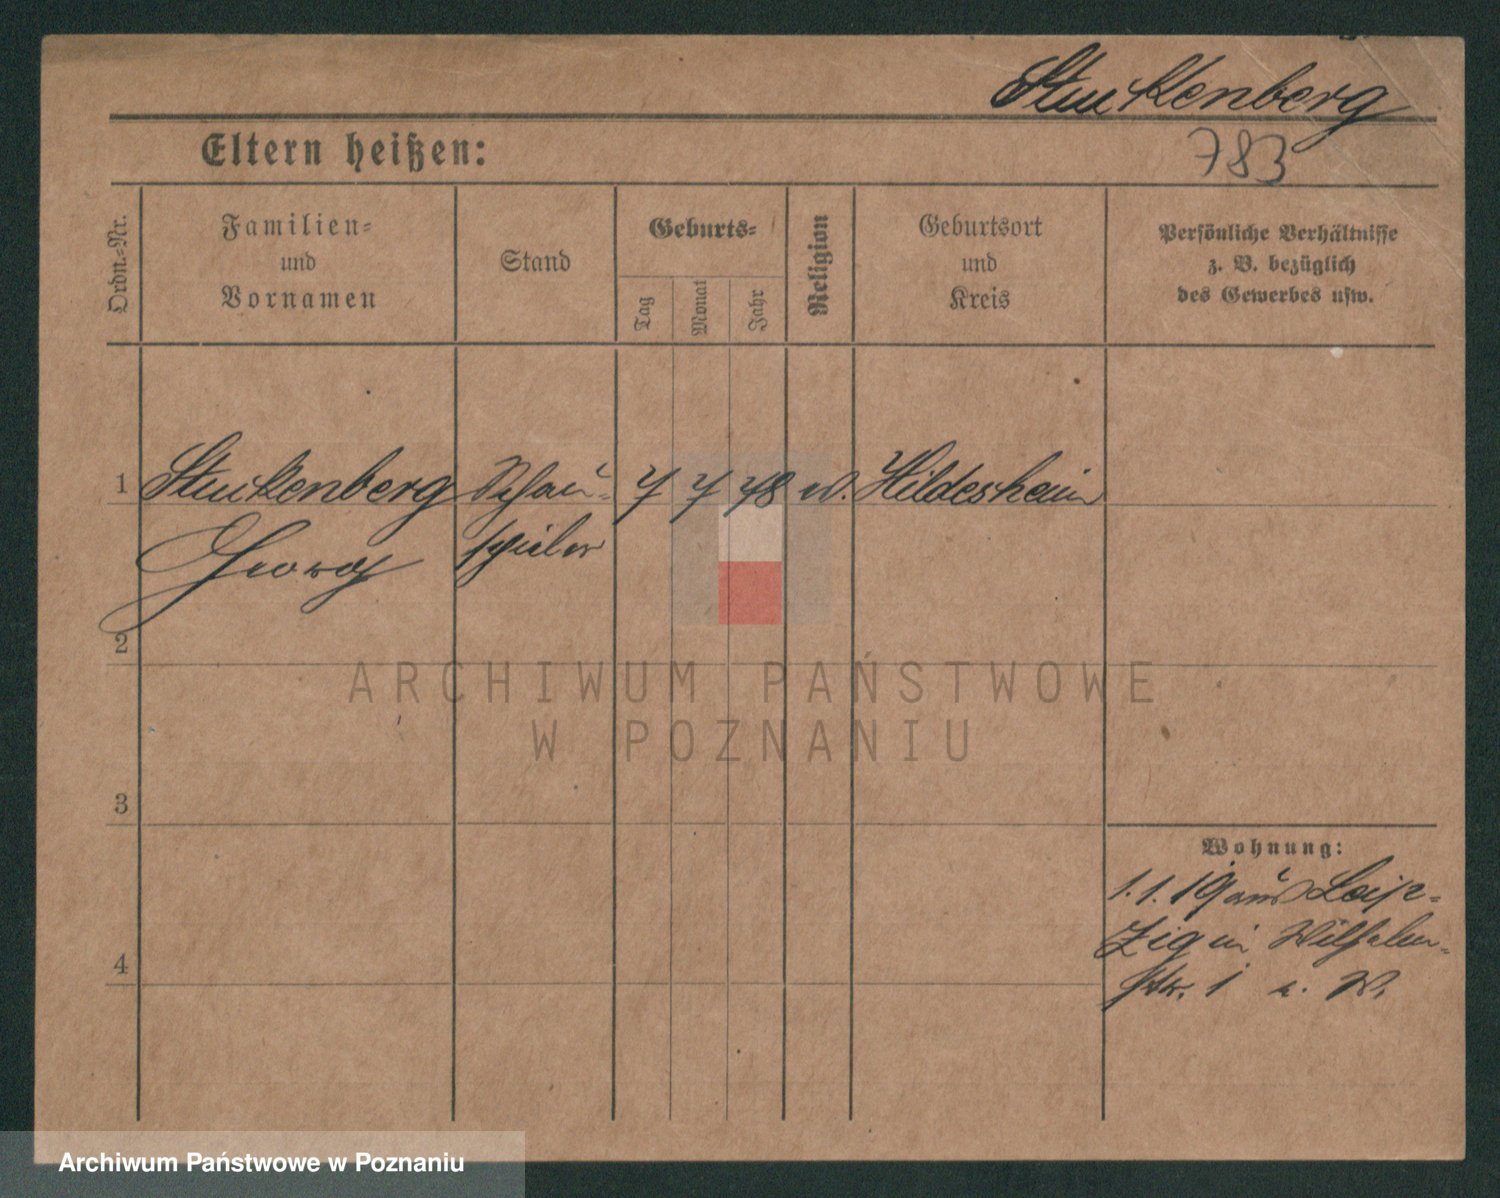 Stuckenberg
Eltern heißen:
783
Ordn.-Nr.
Familien-
und
Vornamen
Stand
Geburts-
Tag
Monat
Jahr
Religion
Geburtsort
und
Kreis
Persönliche Verhältnisse
z. B. bezüglich
des Gewerbes usw.
1 Stuckenberg Schau- 7 7 78 Hildesheim
Georg spieler
2
ARCHIWUM PAŃSTWOWE
W POZNANIU
3
Wohnung:
1.1.19 aus Leip-
zig in Wilhelm-
4
str. 1
Archiwum Państwowe w Poznaniu